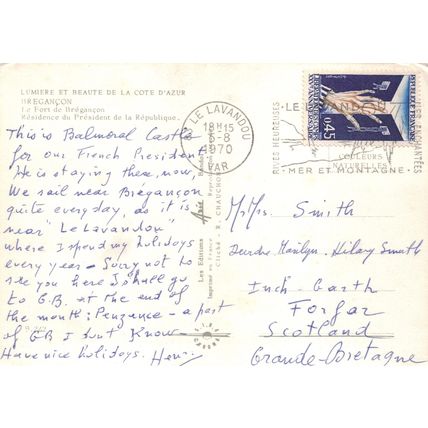 LUMIERE ET BEAUTE DE LA COTE D'AZUR
BREGANÇON
Le Fort de Brégançon
Résidence du Président de la République.
This is Balmoral Castle
for our French President
He is staying there, now,
We sail near Brégançon
quite everyday, as it is
near "Le Lavandou"
where I spend my holidays
every year - Sorry not to
see you here I shall go
to G.B. at the end of
the month: Penzance - a part
of GB I don't know -
Have nice holidays. Henri
Les Editions
Imprimé en France
Cliché - R. CHAUCHO
LE LAVANDOU
18H15
6-8
1970
VAR
REPUBLIQUE FRANÇAISE
0,45
RIVES HEUREUSES
LE LAVANDOU
COULEURS
NATURELLES
MER ET MONTAGNE
Smith
Deirdre Marilyn - Hilary Smith
Inch-Garth
Forfar
Scotland
Grande-Bretagne